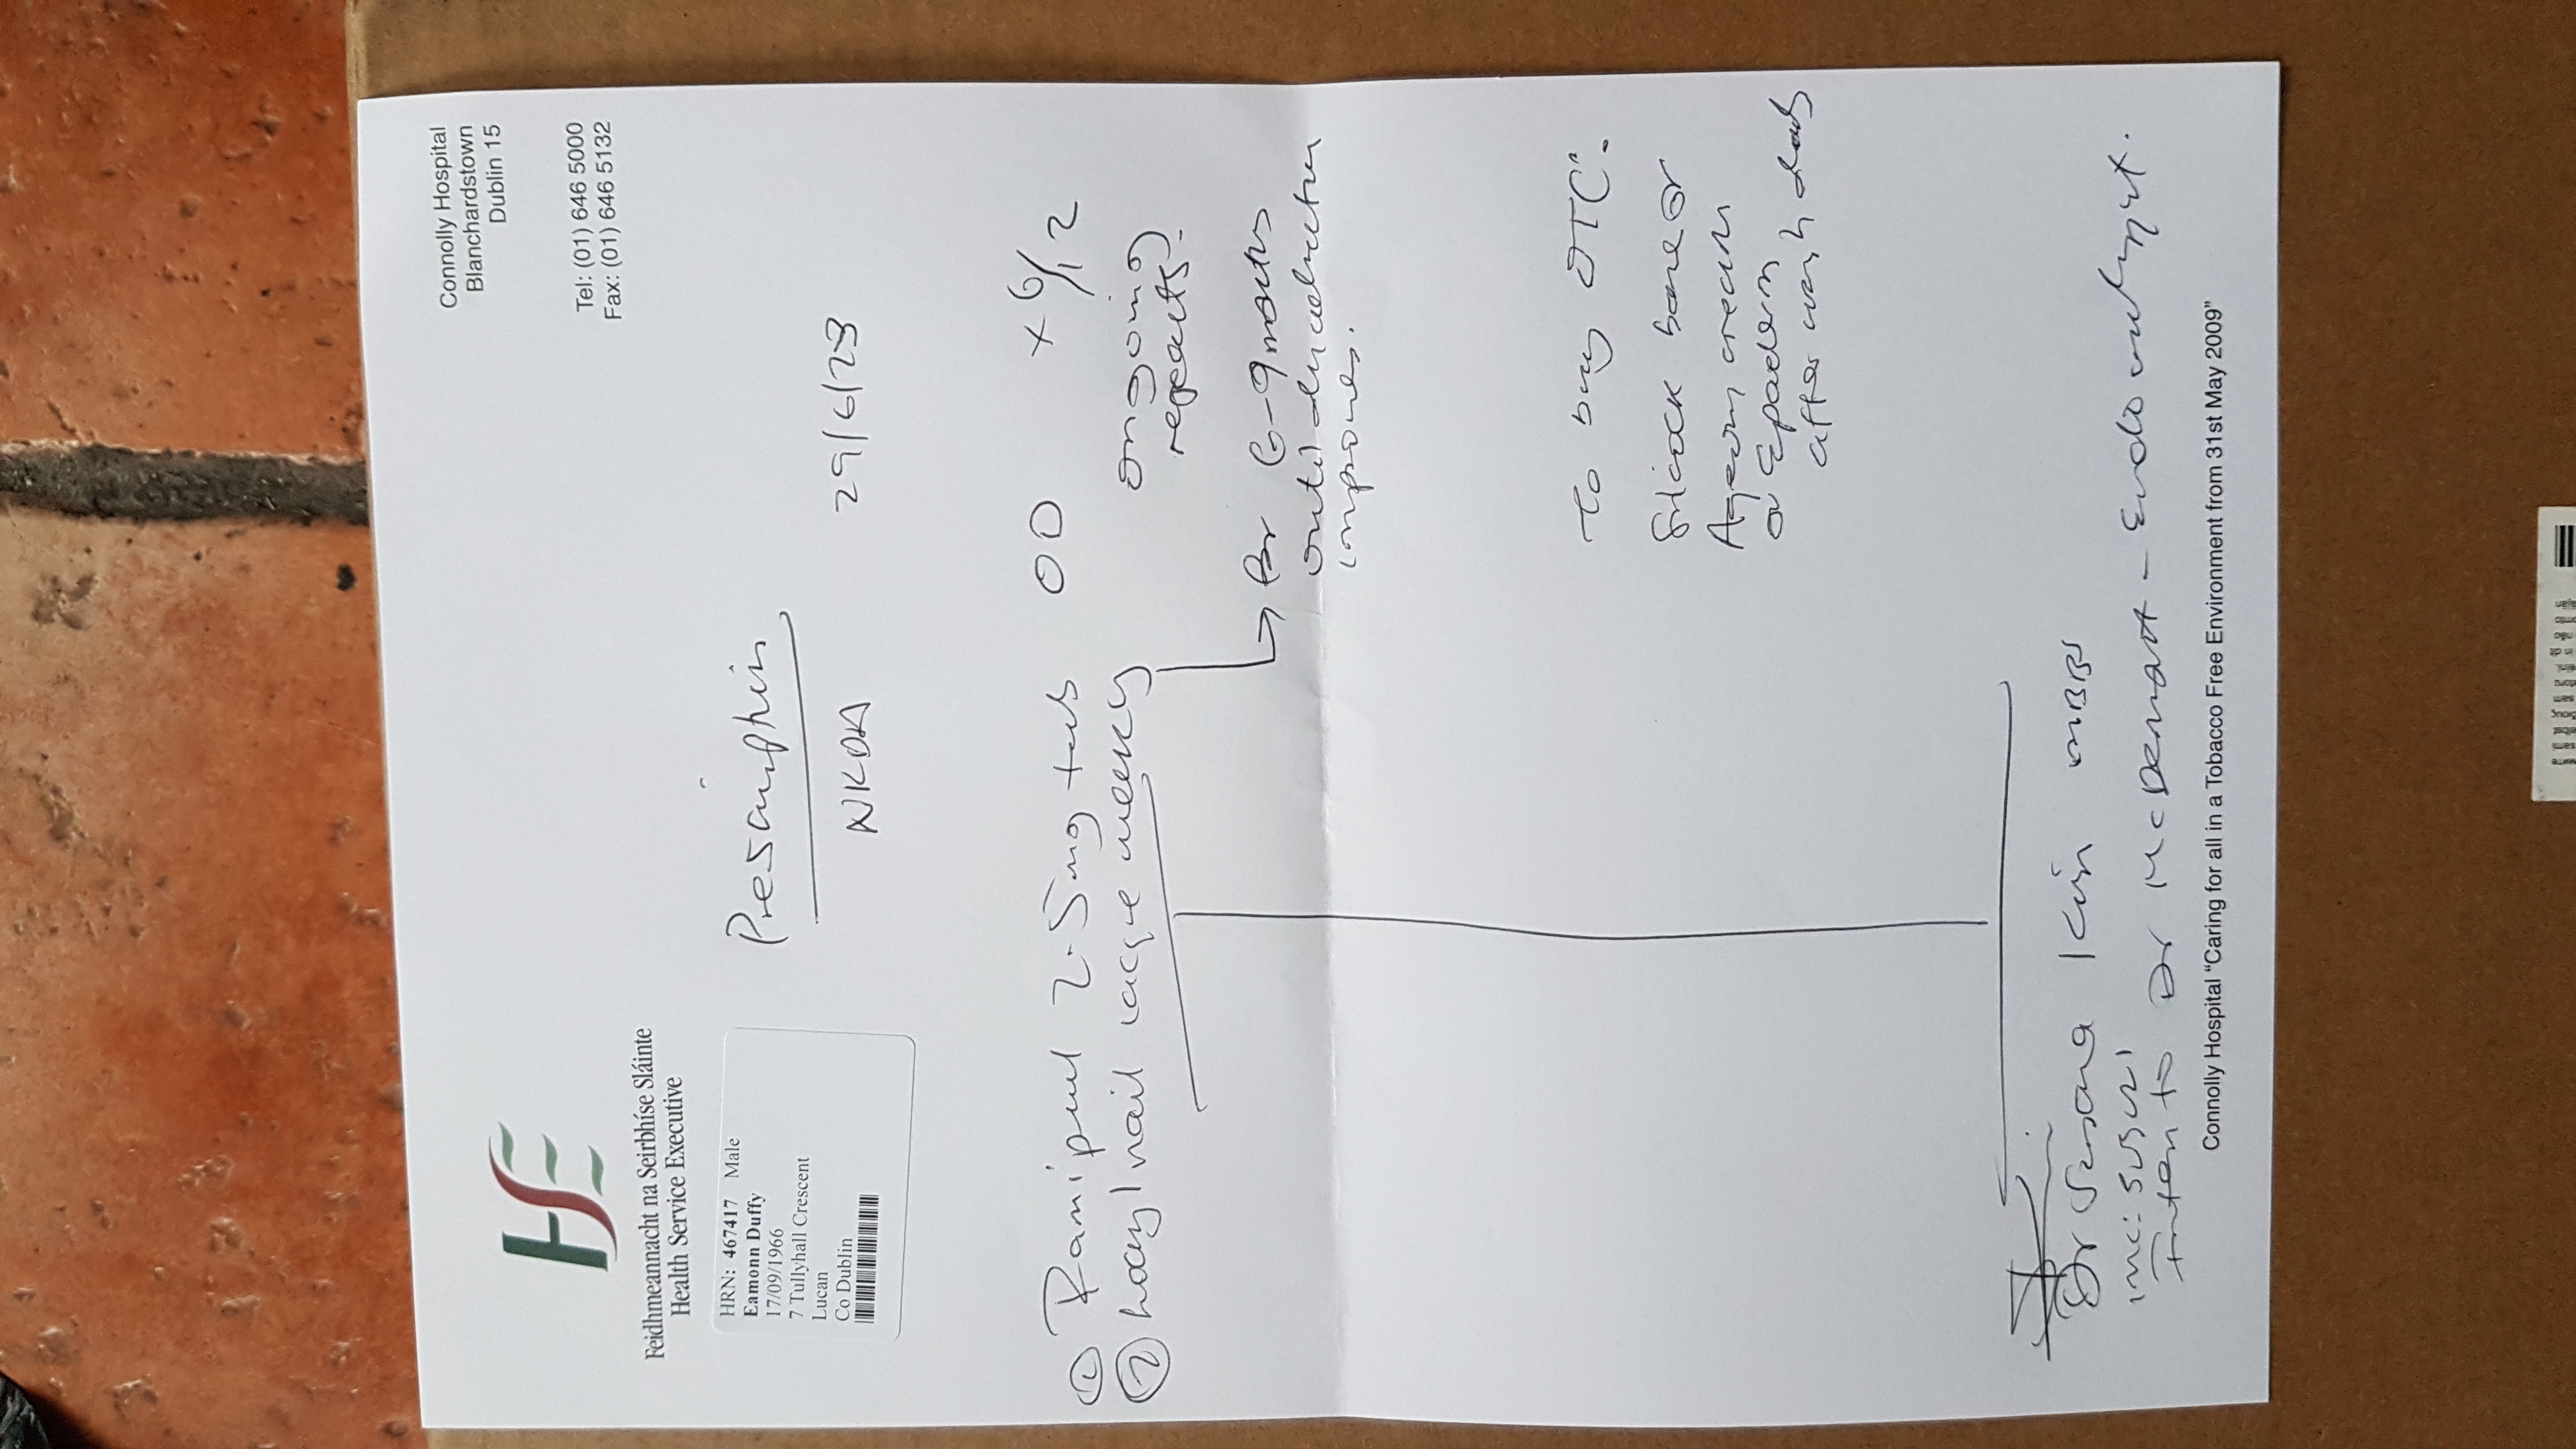 Connolly Hospital
Blanchardstown
Dublin 15
Tel: (01) 646 5000
Fax: (01) 646 5132
HSE
Feidhmeannacht na Seirbhíse Sláinte
Health Service Executive
HRN: 467417 Male
Eamonn Duffy
17/09/1966
7 Tullyhall Crescent
Lucan
Co Dublin
Prescription
NKDA
29/6/23
① Ramipril 2.5mg tabs OD x 6/12
② nail weekly
ongoing
repeats.
for 6-9 months
until
improves.
To buy OTC:
Silcock base or
cream
or Epaderm
after wash
Dr MBBS
IMC:
Intern to Dr McDermott -
Connolly Hospital “Caring for all in a Tobacco Free Environment from 31st May 2009”